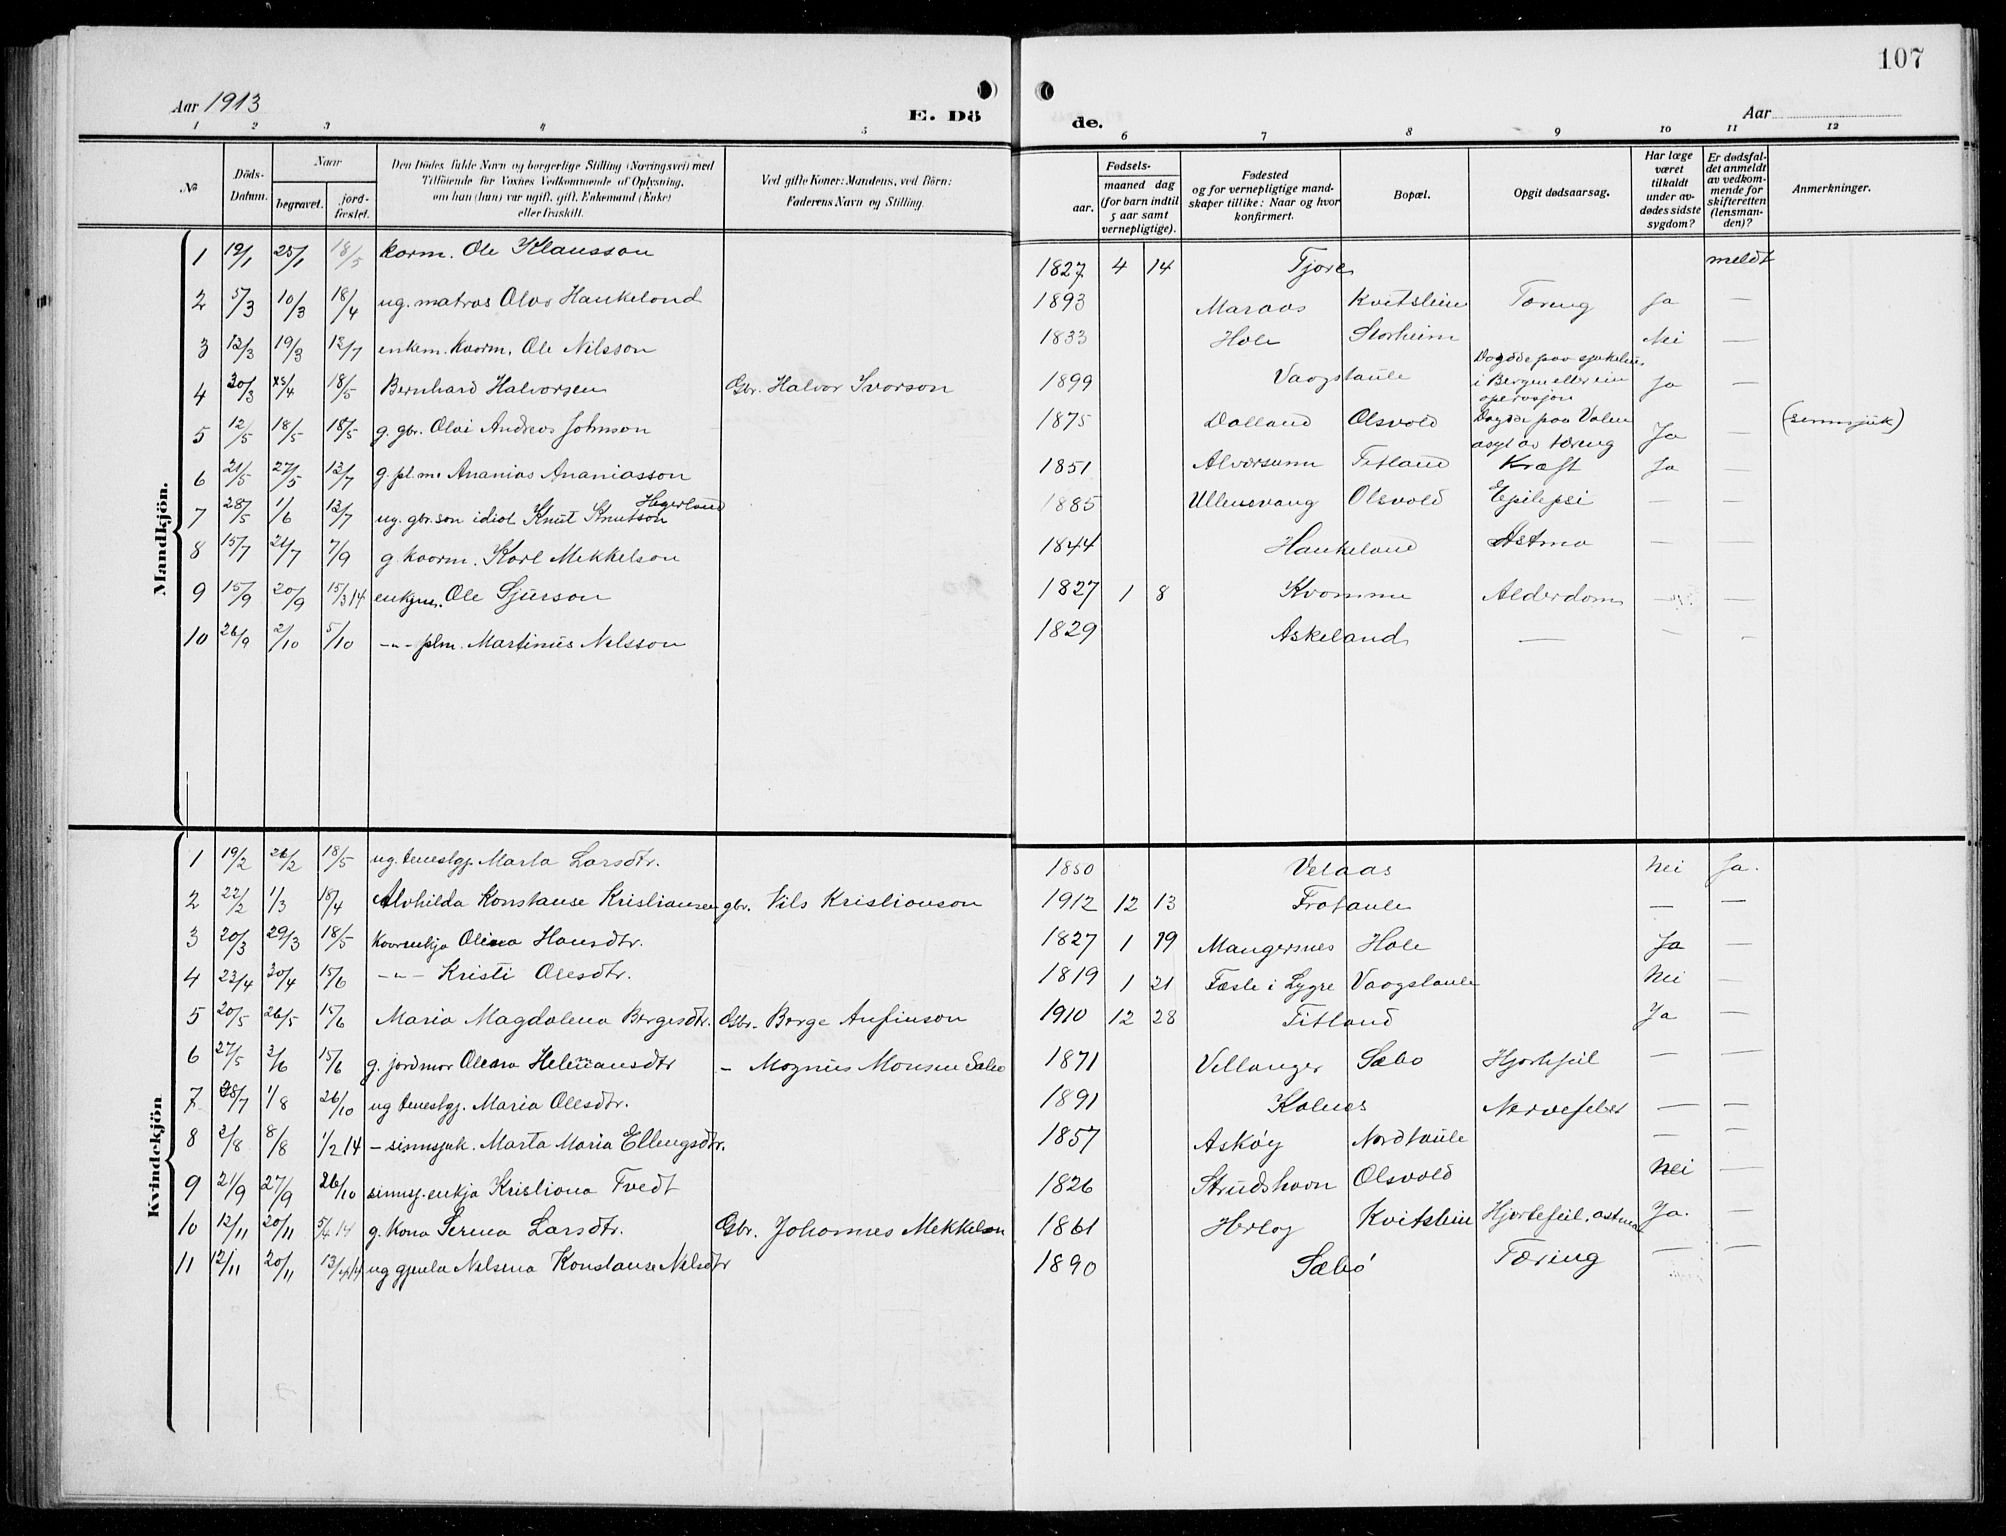 107
Aar 1913
E. Dö
de.
Aar
1 2 3 4 5 6 7 8 9 10 11 12
No
Döds-Datum.
Naar
begravet.
jord-fæstet.
Den Dödes fulde Navn og borgerlige Stilling (Næringsvei) med
Tilföiende for Voxnes Vedkommende af Oplysning,
om han (hun) var ugift, gift, Enkemand (Enke)
eller fraskilt.
Ved gifte Koner: Mandens, ved Börn:
Faderens Navn og Stilling.
Fødsels-
aar.
maaned dag
(for barn indtil
5 aar samt
vernepligtige).
Fødested
og for vernepligtige mand-
skaper tillike: Naar og hvor
konfirmert.
Bopæl.
Opgit dødsaarsag.
Har læge
været
tilkaldt
under av-
dødes sidste
sygdom?
Er dødsfal-
det anmeldt
av vedkom-
mende for
skifteretten
(lensman-
den)?
Anmerkninger.
Mandkjön.
1 19/1 25/1 18/5 kaarm. Ole Klausson 1827 4 14 Tjore meldt
2 5/3 10/3 18/4 ug. matros Olav Haukeland 1893 Maraas Kvitstein Tæring Ja —
3 13/3 19/3 13/7 enkem. kaarm. Ole Nilsson 1833 Hole Storheim Nei —
4 30/3 /4 18/5 Bernhard Halvorsen Gbr. Halvor Ivarson 1899 Vaagstaule Døydde paa sjukehus
i Bergen etter ein
operasjon Ja —
5 12/5 18/5 18/5 g. gbr. Olai Andreas Johnson 1875 Dalland Olsvold Døydde paa Valen
asyl av tæring Ja — (sinnsjuk)
6 21/5 27/5 13/7 g. plm. Ananias Ananiasson 1851 Alversund Titland Kræft Ja —
7 28/5 1/6 13/7 ug. gbr.son idiot Knut Knutson Hegerland 1885 Ullensvang Olsvold Epilepsi — —
8 15/7 21/7 7/9 g kaarm. Karl Mekkelson 1844 Haukeland Astma — —
9 15/9 20/9 15/3 14 enkjem. Ole Sjurson 1827 1 8 Kvamme Alderdom — —
10 26/9 2/10 5/10 -"- plm. Martinus Nilsson 1829 Askeland — - -
Kvindekjön
1 19/2 26/2 18/5 ug. tenestgj. Marta Larsdtr. 1850 Velaas Nei Ja.
2 22/2 1/3 18/4 Alvhilda Konstanse Kristiansen gbr. Nils Kristianson 1912 12 13 Frotaule — —
3 20/3 29/3 18/5 Kaarenkja Olina Hansdtr. 1827 1 19 Mangersnes Hole Ja —
4 23/4 30/4 15/6 -"- Kristi Olesdtr. 1819 1 21 Fæste i Lygre Vaagstaule Nei —
5 20/5 26/5 15/6 Maria Magdalena Bergesdtr. Gbr. Berge Anfinson 1910 12 28 Titland Ja —
6 27/5 2/6 15/6 g. jordmor Oleana Helmansdtr — Magnus Monsen Sæbø 1871 Vellanger Sæbø Hjartefeil — —
7 28/7 1/8 26/10 ug tenestgj. Maria Olesdtr. 1891 Kolnes Nervefeber — —
8 2/8 8/8 1/2 14 — sinnsjuk. Marta Maria Ellingsdtr. 1857 Askøy Nordtaule — —
9 21/9 27/9 26/10 sinnsj. enkja Kristiana Tvedt 1826 Strudshavn Olsvold Nei —
10 12/11 20/11 5/4 14 g. kona Serina Larsdtr. Gbr. Johannes Mekkelson 1861 Herløy Kvitstein Hjartefeil, astma Ja. —
11 12/11 20/11 13/4 14 ug gjenta Nelsina Konstanse Nilsdtr 1890 Sæbø Tæring — —